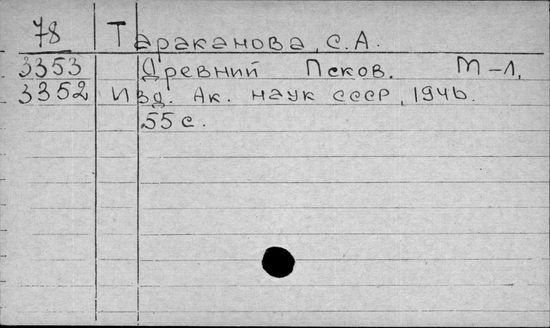 78 Тараканова, С.А.
3353 Древний Псков. М-Л,
3352 Изд. Ак. наук СССР, 1946.
55 с.